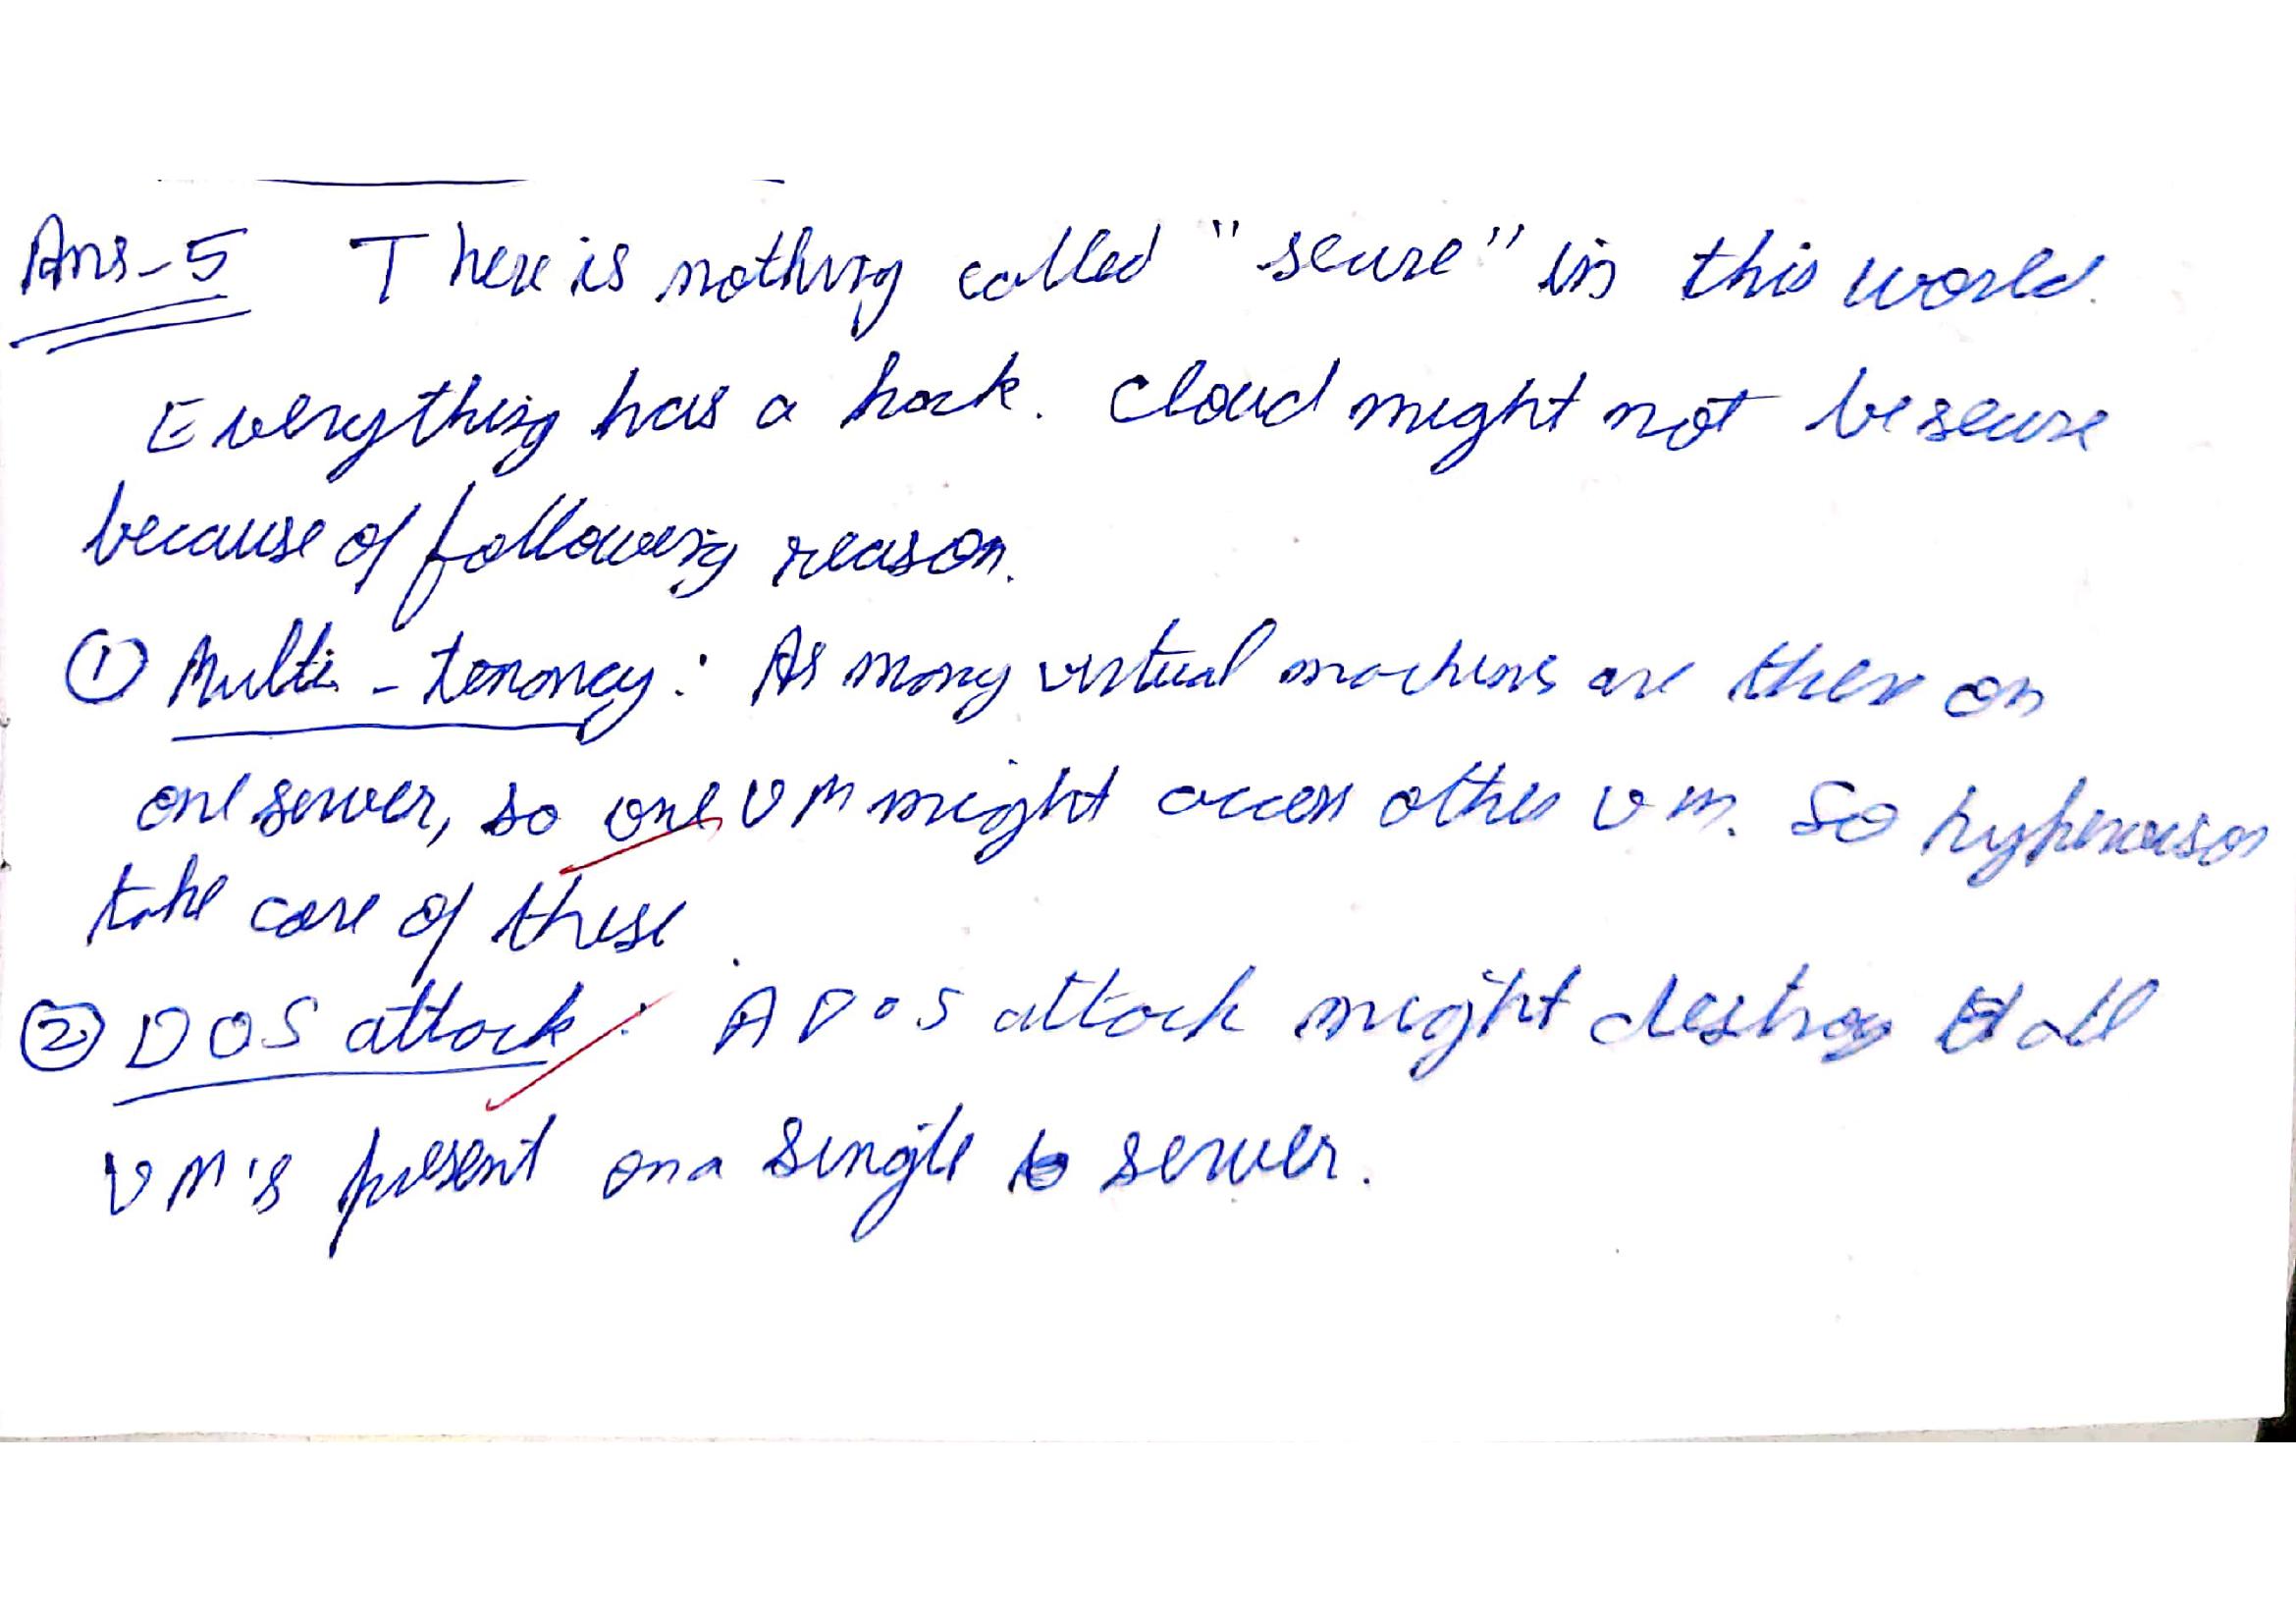 Ans-5 There is nothing called "secure" in this world.
Everything has a hack. Cloud might not be secure
because of following reason.
① Multi-tenancy: As many virtual machines are there on
one server, so one VM might access other VM. So hypervisor
take care of these.
② DOS attack: A DoS attack might destroy all
VM's present on a single server.